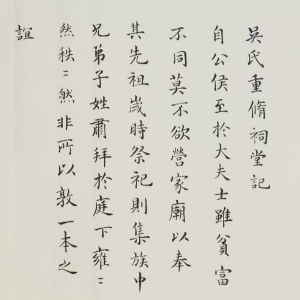 吳氏重脩祠堂記
自公侯至於大夫士雖貧富
不同莫不欲營家廟以奉
其先祖歲時祭祀則集族中
兄弟子姓肅拜於庭下雍:
然秩:然非所以敦一本之
誼